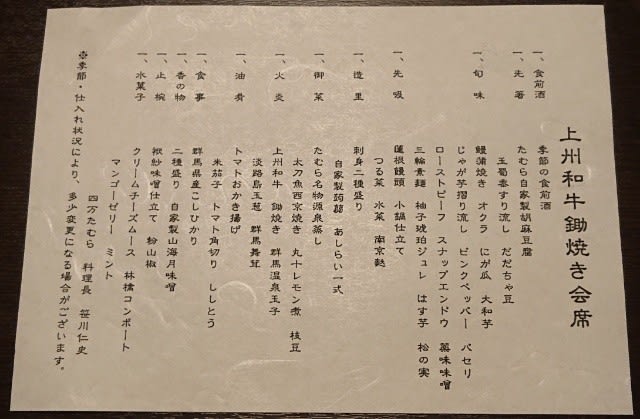 上州和牛鋤焼き会席
一、食前酒 季節の食前酒
一、先箸 たむら自家製胡麻豆腐
玉蜀黍すり流し だだちゃ豆
一、旬味 鰻蒲焼き オクラ にが瓜 大和芋
じゃが芋摺り流し ピンクペッパー パセリ
ローストビーフ スナップエンドウ 薬味味噌
三輪素麺 柚子琥珀ジュレ はす芋 松の実
一、先吸 蓮根饅頭 小鍋仕立て
つる菜 水菜 南京麩
一、造里 刺身二種盛り
自家製蒟蒻 あしらい一式
一、御菜 たむら名物源泉蒸し
太刀魚西京焼き 丸十レモン煮 枝豆
一、火炎 上州和牛 鋤焼き 群馬温泉玉子
淡路島玉葱 群馬舞茸
一、油肴 トマトおかき揚げ
米茄子 トマト角切り ししとう
一、食事 群馬県産こしひかり
一、香の物 二種盛り 自家製山海月味噌
一、止椀 袱紗味噌仕立て 粉山椒
一、水菓子 クリームチーズムース 林檎コンポート
マンゴーゼリー ミント
四万たむら 料理長 笹川仁史
※季節・仕入れ状況により、多少変更になる場合がございます。